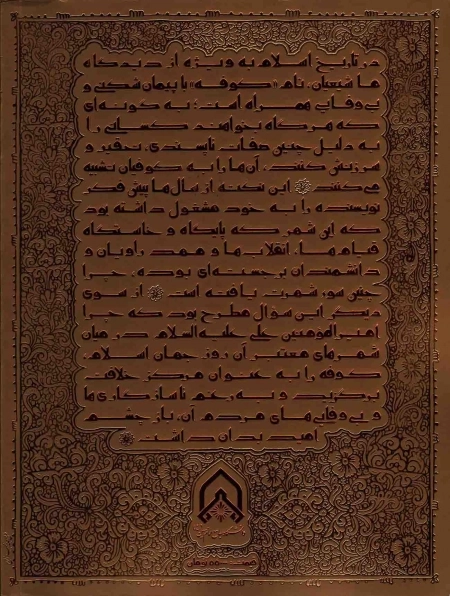 در تاریخ اسلام به ویژه از دیدگاه
ما شیعیان، نام «کوفه» با پیمان شکنی و
بی‌وفایی همراه است؛ به گونه‌ای
که هرگاه بخواهند کسانی را
به دلیل چنین صفات ناپسندی، تحقیر و
سرزنش کنند، آن‌ها را به کوفیان تشبیه
می‌کنند این نکته از سال‌ها پیش فکر
نویسنده را به خود مشغول داشته بود
که این شهر که پایگاه و خاستگاه
قیام‌ها، انقلاب‌ها و مهد راویان و
دانشمندان برجسته‌ای بوده، چرا
چنین سوء شهرت یافته است از سوی
دیگر این سوال مطرح بود که چرا
امیرالمومنین علی علیه‌السلام در میان
شهرهای معتبر آن روز جهان اسلام،
کوفه را به عنوان مرکز خلافت
برگزید و به رغم ناسازگاری‌ها
و بی‌وفایی‌های مردم آن، باز چشم
امید بدان داشت